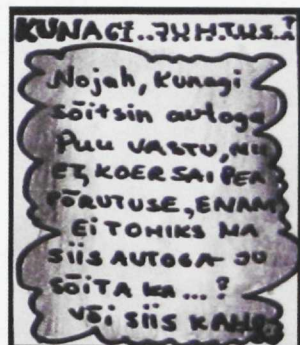 KUNAGI..JUHTUS..?
Nojah, Kunagi
sõitsin autoga
PUU VASTU, NII
ET, KOER SAI PEA
PÕRUTUSE, ENAM
EI TOHIKS MA
SIIS AUTOGA JU
SÕITA KA...?
VÕI SIIS KAHJU